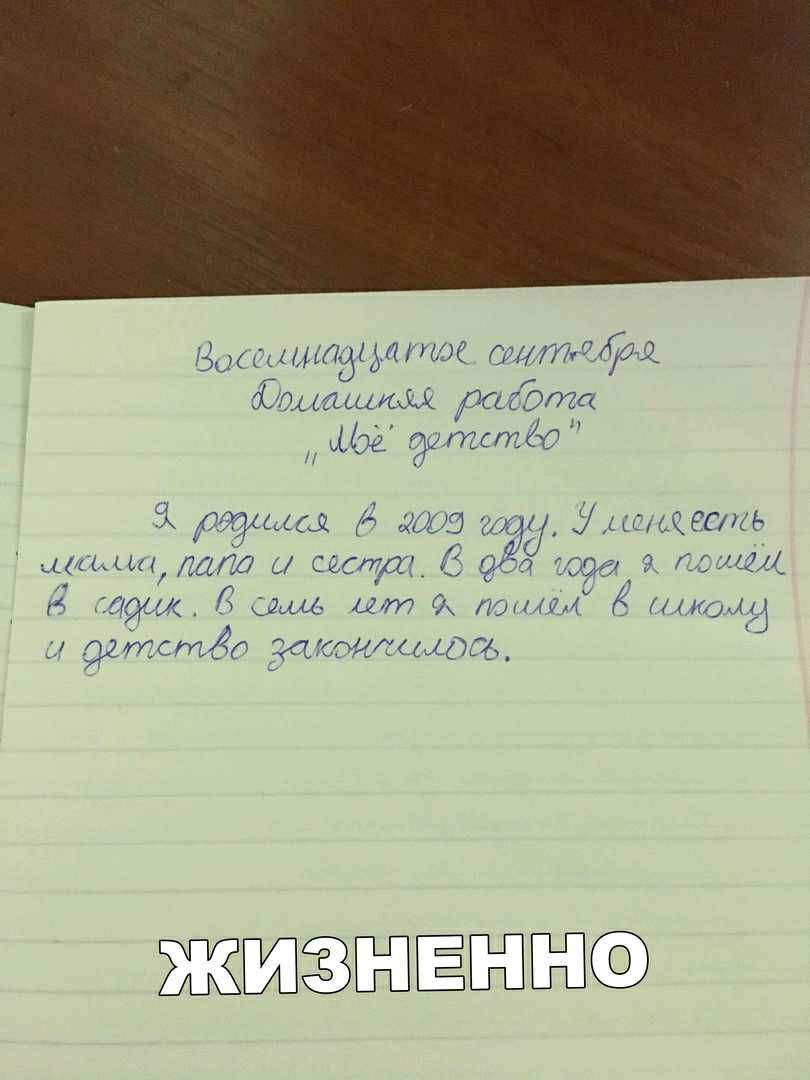 Восемнадцатое сентября
Домашняя работа
„Моё детство"
Я родился в 2009 году. У меня есть
мама, папа и сестра. В два года я пошёл
в садик. В семь лет я пошёл в школу
и детство закончилось.
ЖИЗНЕННО